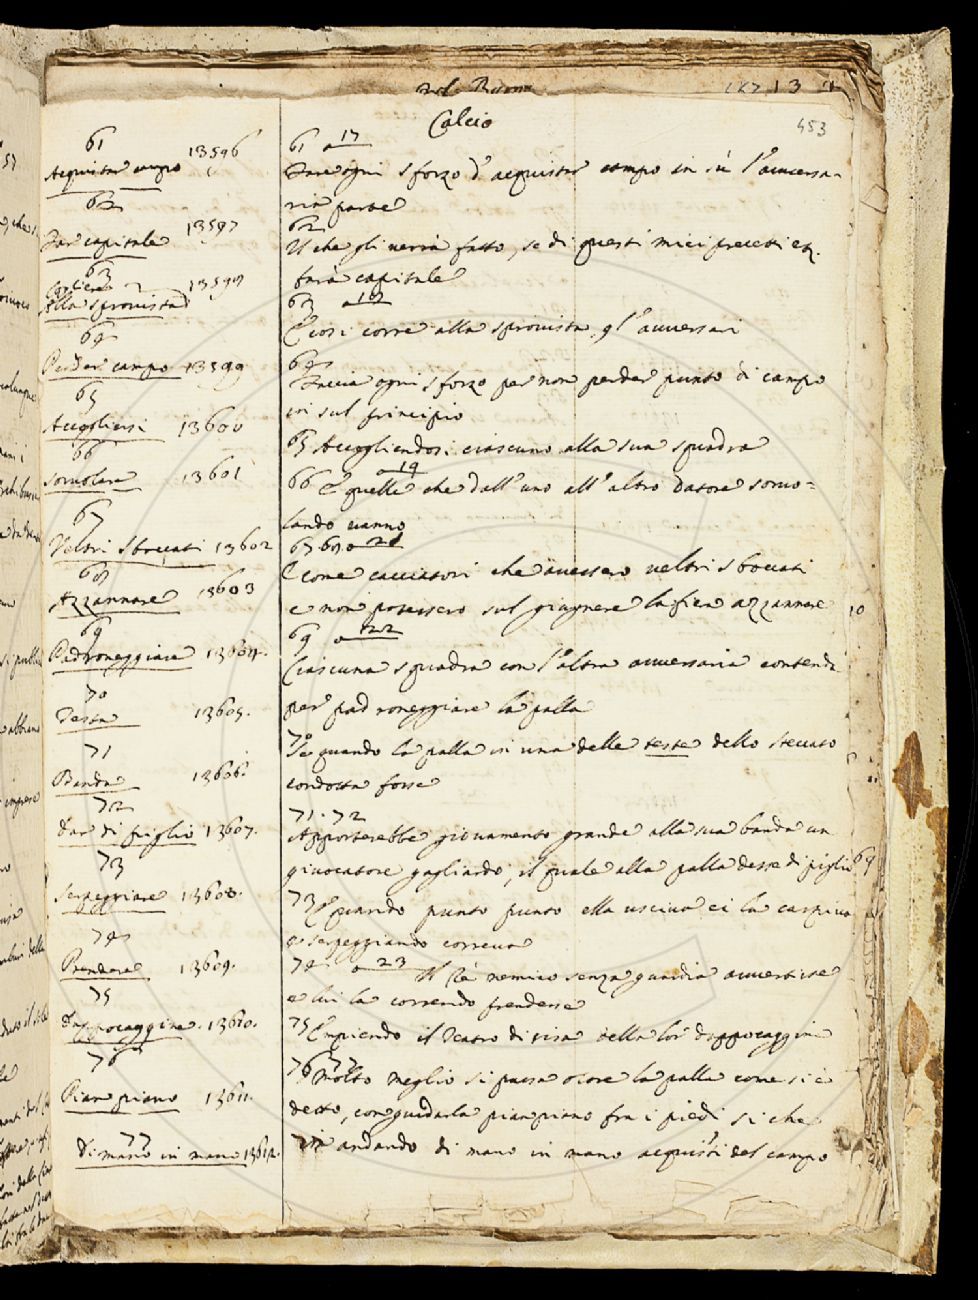 Calcio
453
61
Acquistar campo 13596
62
Far capitale 13597
63
Cogliere
Alla sprovista 13598
64
Perder campo 13599
65
Accogliersi 13600
66
Sorvolare 13601
67
Veltri sboccati 13602
68
Azzannare 13603
69
Padroneggiare 13604.
70
Testa 13605.
71
Banda 13606.
72
Dar di piglio 13607.
73
Serpeggiare 13608.
74
Prendere 13609.
75
Dappocaggine 13610.
76
Pian piano 13611.
77
Di mano in mano 13612.
61 a 17
Fare ogni sforzo d'acquistar campo in sù l'avversa-
ria parte
62
Il che gli verrà fatto, se di questi miei precetti et.
farà capitale
63 a 18
E così corre alla sprovista gl'avversari
64
Faccia ogni sforzo per non perder punto di campo
in sul principio
65 Accogliendosi ciascuno alla sua squadra
66 a 19
E quelle che dall'uno all'altro datore sorvo=
lando vanno
67 68 a 21
E come cacciatori che avessero veltri sboccati
e non potessero sul giugnere la fiera azzannare
69 a 22
Ciascuna squadra con l'altra avversaria contenda
per padroneggiare la palla
70
Se quando la palla in una delle teste dello steccato
condotta fosse
71. 72
Apporterebbe giovamento grande alla sua banda un
giuocatore gagliardo, il quale alla palla desse di piglio
73 E quando punto punto ella usciva ei la carpiva
e serpeggiando correva
74 a 23 Il Rè nemico senza guardia avvertisse
e lui la correndo prendesse
75 Empiendo il Teatro di risa della lor dappocaggine
76 77
Molto meglio si passa oltre la palla come si è
detto, con guidarla pian piano fra i piedi si che
77 in andando di mano in mano acquisti del campo